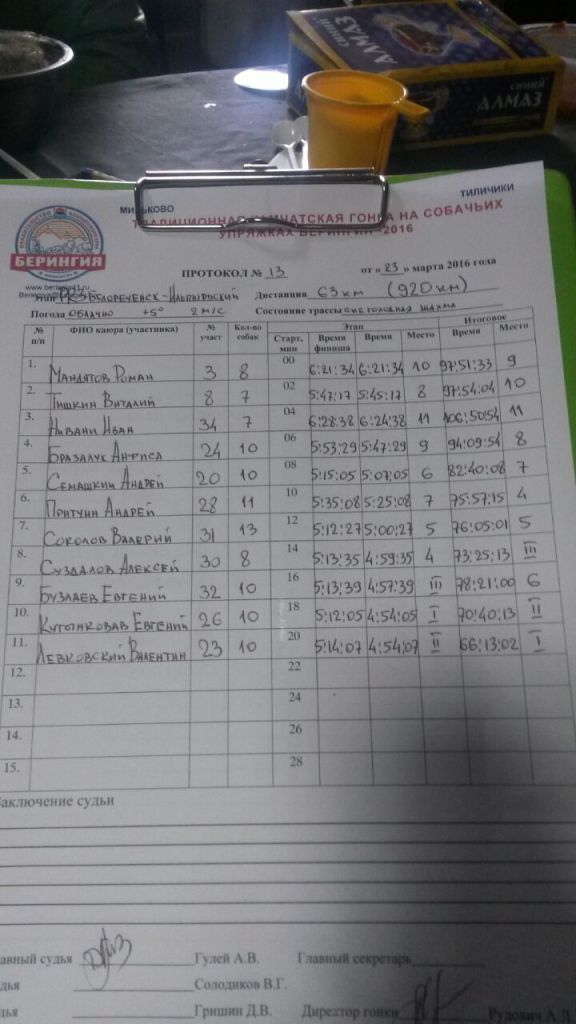 СИНИЙ
АЛМАЗ
СИНИЙ
АЛМАЗ
МИЛЬКОВО
ТИЛИЧИКИ
ТРАДИЦИОННАЯ КАМЧАТСКАЯ ГОНКА НА СОБАЧЬИХ
УПРЯЖКАХ БЕРИНГИЯ-2016
БЕРИНГИЯ
ПРОТОКОЛ № 13 от « 23 » марта 2016 года
Дистанция 63 км (920 км)
Погода ОБЛАЧНО +5° 2 М/С Состояние трассы
№ п/п ФИО каюра (участника) № участ Кол-во собак Этап Итоговое
Старт, мин Время финиша Время Место Время Место
1. МАНДЯТОВ РОМАН 3 8 00 6:21:34 6:21:34 10 97:51:33 9
2. ТИШКИН ВИТАЛИЙ 8 7 02 5:47:17 5:45:17 8 97:54:04 10
3. НИВАНИ ИВАН 34 7 04 6:28:38 6:24:38 11 106:50:54 11
4. БРАЗАЛУК АНФИСА 24 10 06 5:53:29 5:47:29 9 94:09:54 8
5. СЕМАШКИН АНДРЕЙ 20 10 08 5:15:05 5:07:05 6 82:40:08 7
6. ПРИТЧИН АНДРЕЙ 28 11 10 5:35:08 5:25:08 7 75:57:15 4
7. СОКОЛОВ ВАЛЕРИЙ 31 13 12 5:12:27 5:00:27 5 76:05:01 5
8. СУЗДАЛОВ АЛЕКСЕЙ 30 8 14 5:13:35 4:59:35 4 73:25:13 III
9. БУЗЛАЕВ ЕВГЕНИЙ 32 10 16 5:13:39 4:57:39 III 78:21:00 6
10. КУТЫНКОВАВ ЕВГЕНИЙ 26 10 18 5:12:05 4:54:05 I 70:40:13 II
11. ЛЕВКОВСКИЙ ВАЛЕНТИН 23 10 20 5:14:07 4:54:07 II 66:13:02 I
12. 22
13. 24
14. 26
15. 28
аключение судьи
авный судья Гулей А.В. Главный секретарь
дья Солодиков В.Г.
дья Гришин Д.В. Директор гонки Рудович А.Л.